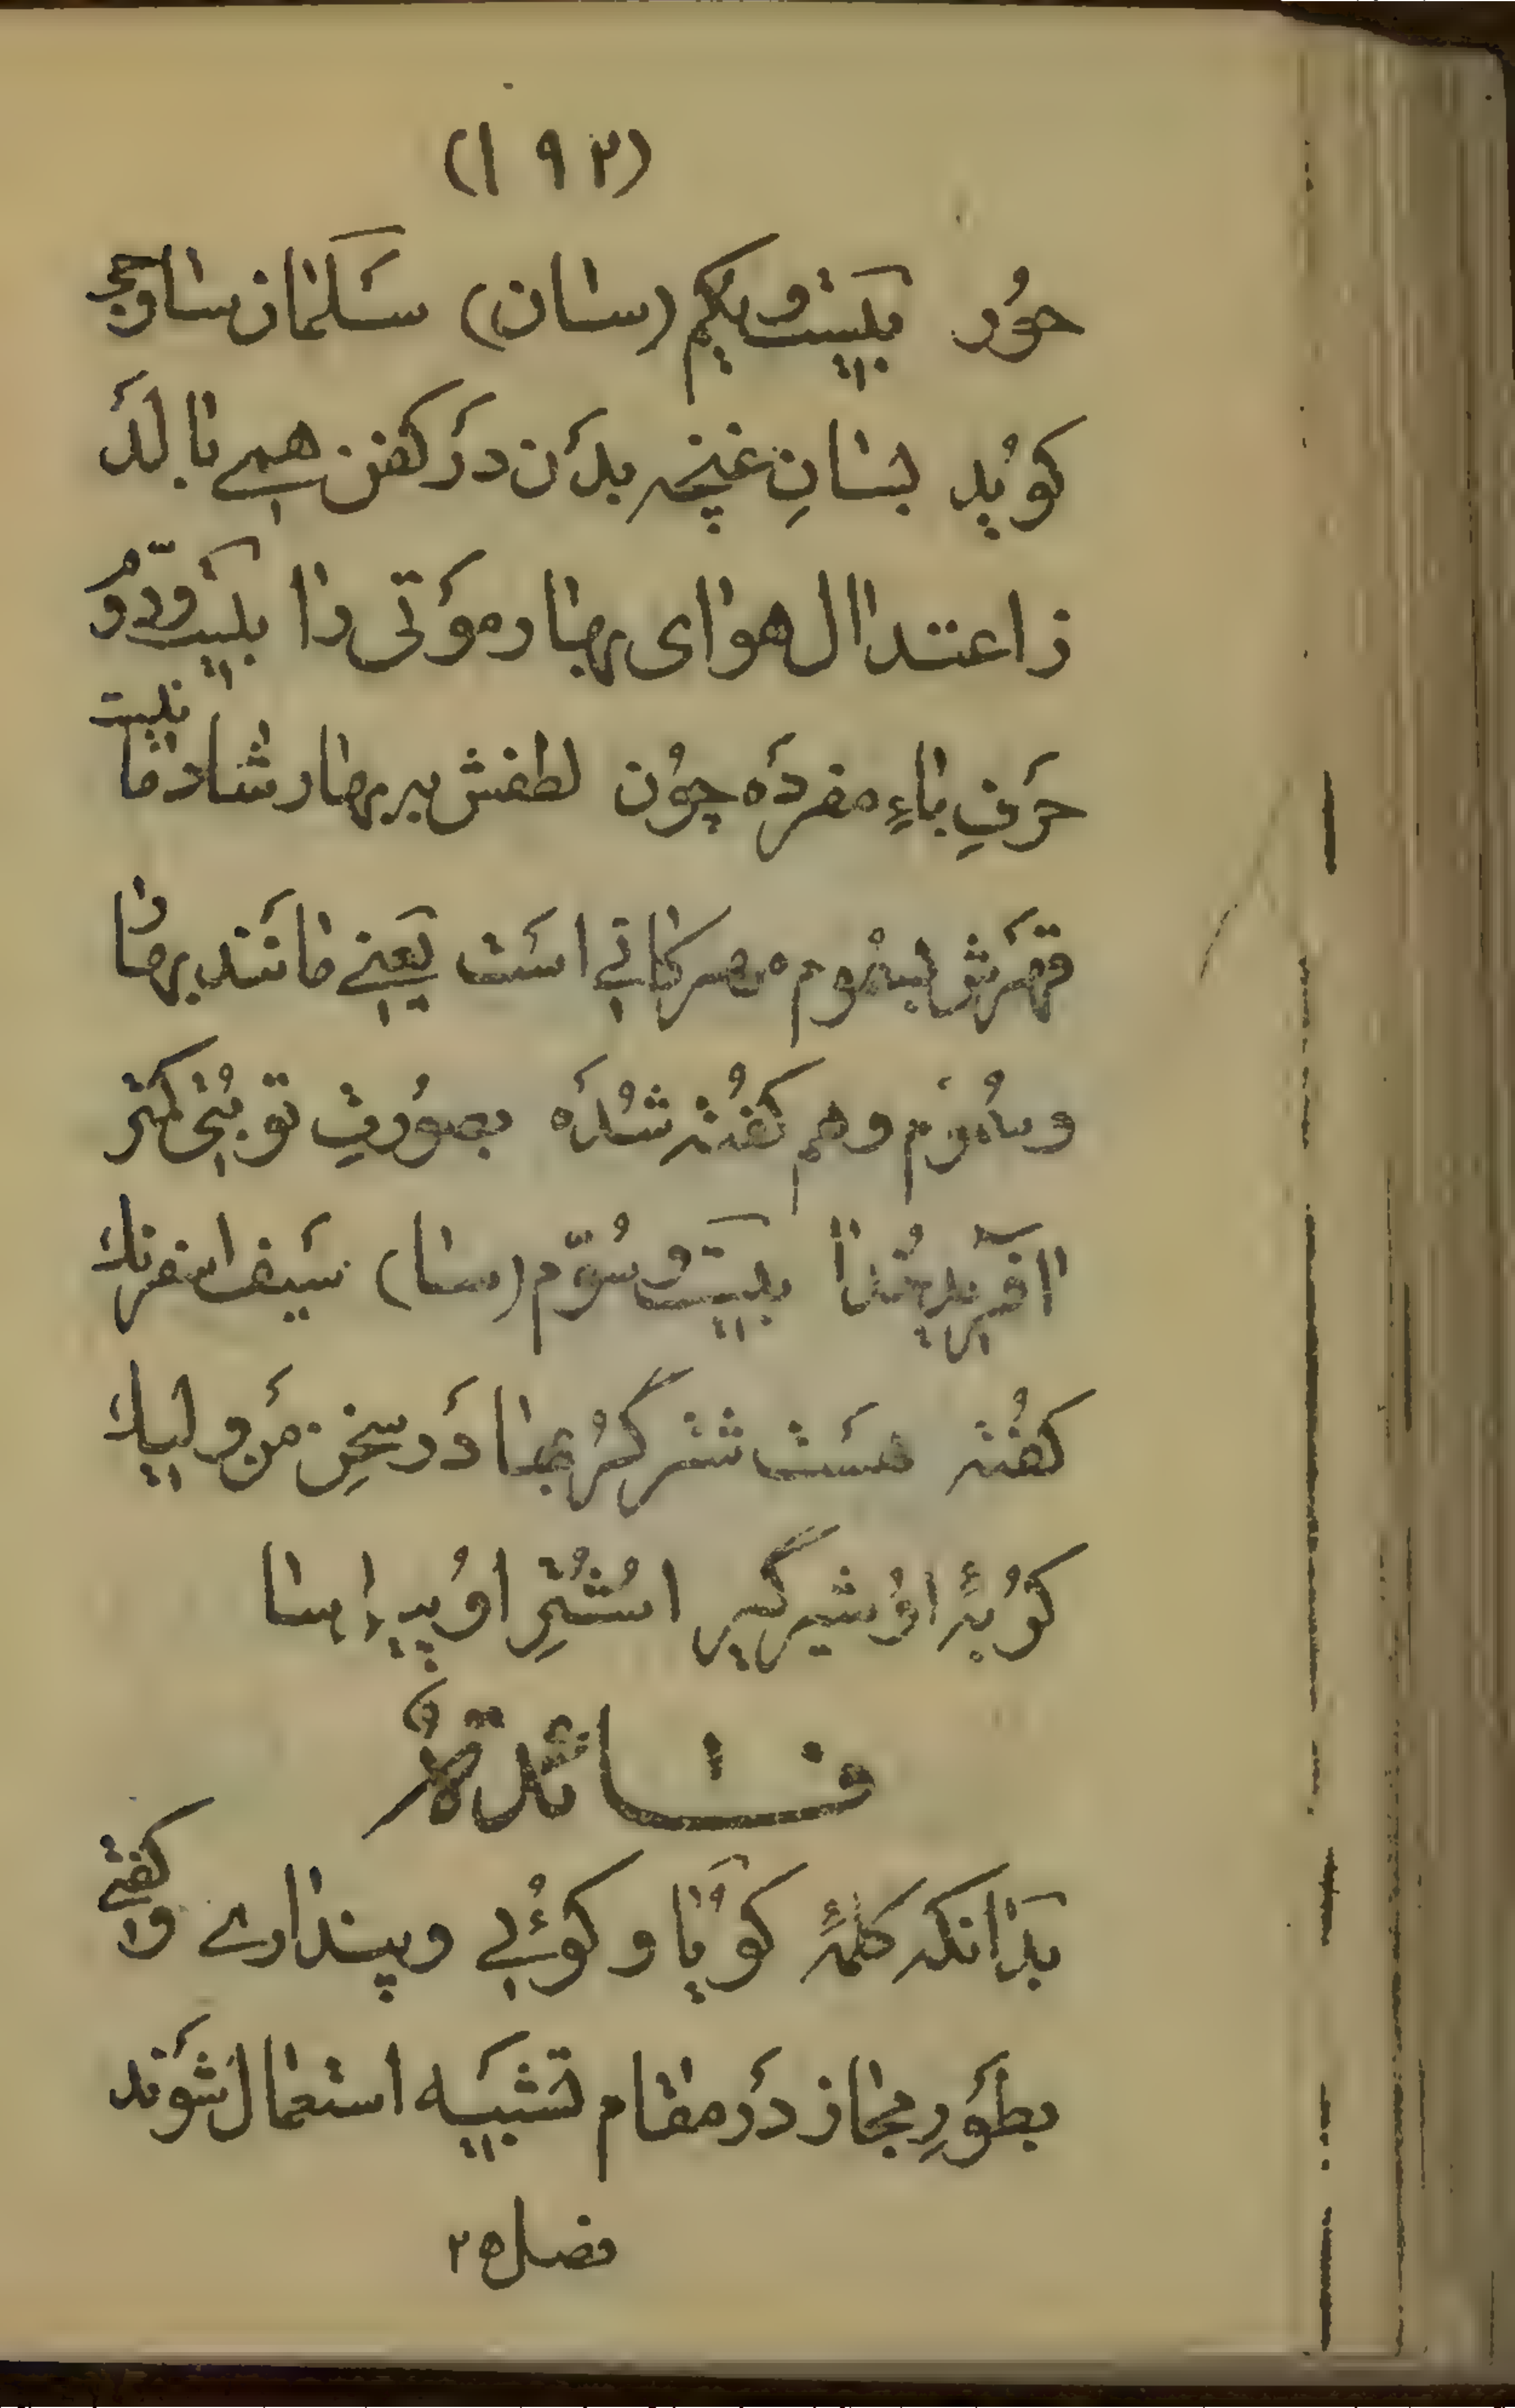 (١٩٢)
حُور بیست و یکم (سان) سَلمان ساوجی
کوُید بسانِ غنچه بدَن دَر کفن همے بالَد
ز اعتدال هوای بهار موَتی را بیست و دوّم
حَرفِ باءِ مفردَه چوُن لطفش بر بهار شادمانیست
قهرَش بسمُوم مهرکانے اسَت یَعنے مانَند بهار
و سمُوَم و هم کفُته شُدَه بصوُرتِ تو بُتی کمتر
آفرید خُدا بیست و سُوّم (سا) سَیف اسفرنک
کفُته هسَت شتر گُربها دَر سخنِ مَن و لیک
کوُبهٔ اوُ شیر گیر اشُتُرِ اوُ پیلسا
فائدةٌ
بدانکه کلمهٔ کوُیا و کوُئے و پندارے و کفتے
بطَورِ مجاز دَر مقام تشبیَه استعمال شَوند
فصل ٢٥